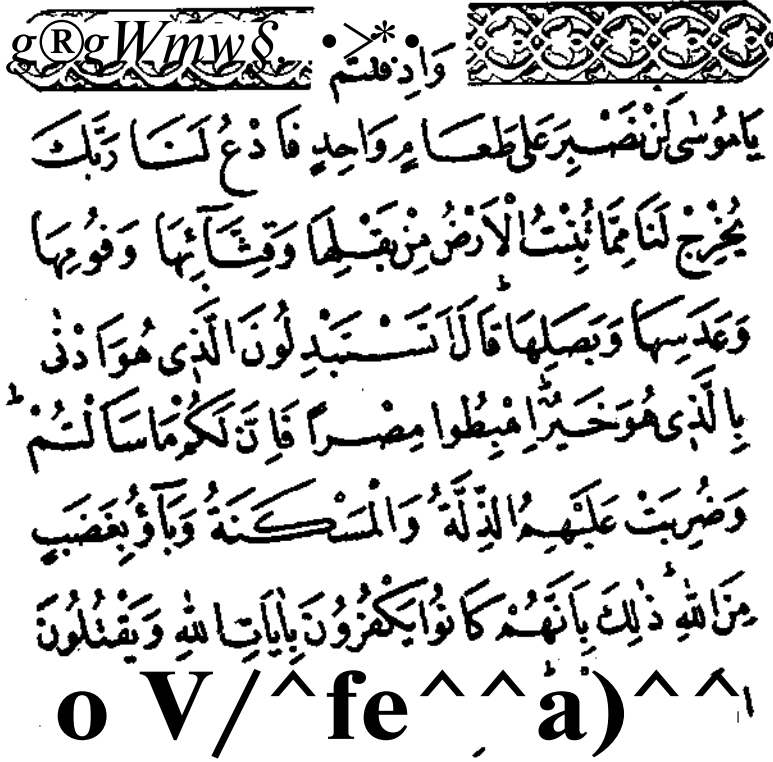 g®gWmw§. •>*•
وَاِذْ قُلْتُمْ
يَامُوسٰى لَنْ نَصْبِرَ عَلٰى طَعَامٍ وَاحِدٍ فَادْعُ لَنَا رَبَّكَ
يُخْرِجْ لَنَا مِمَّا تُنْبِتُ الْاَرْضُ مِنْ بَقْلِهَا وَقِثَّآئِهَا وَفُومِهَا
وَعَدَسِهَا وَبَصَلِهَا قَالَ اَتَسْتَبْدِلُونَ الَّذِى هُوَ اَدْنٰى
بِالَّذِى هُوَ خَيْرٌ اِهْبِطُوا مِصْرًا فَاِنَّ لَكُمْ مَا سَاَلْتُمْ
وَضُرِبَتْ عَلَيْهِمُ الذِّلَّةُ وَالْمَسْكَنَةُ وَبَآؤُ بِغَضَبٍ
مِنَ اللّٰهِ ذٰلِكَ بِاَنَّهُمْ كَانُوا يَكْفُرُونَ بِاٰيَاتِ اللّٰهِ وَيَقْتُلُونَ
o V/^fe^^a)^^